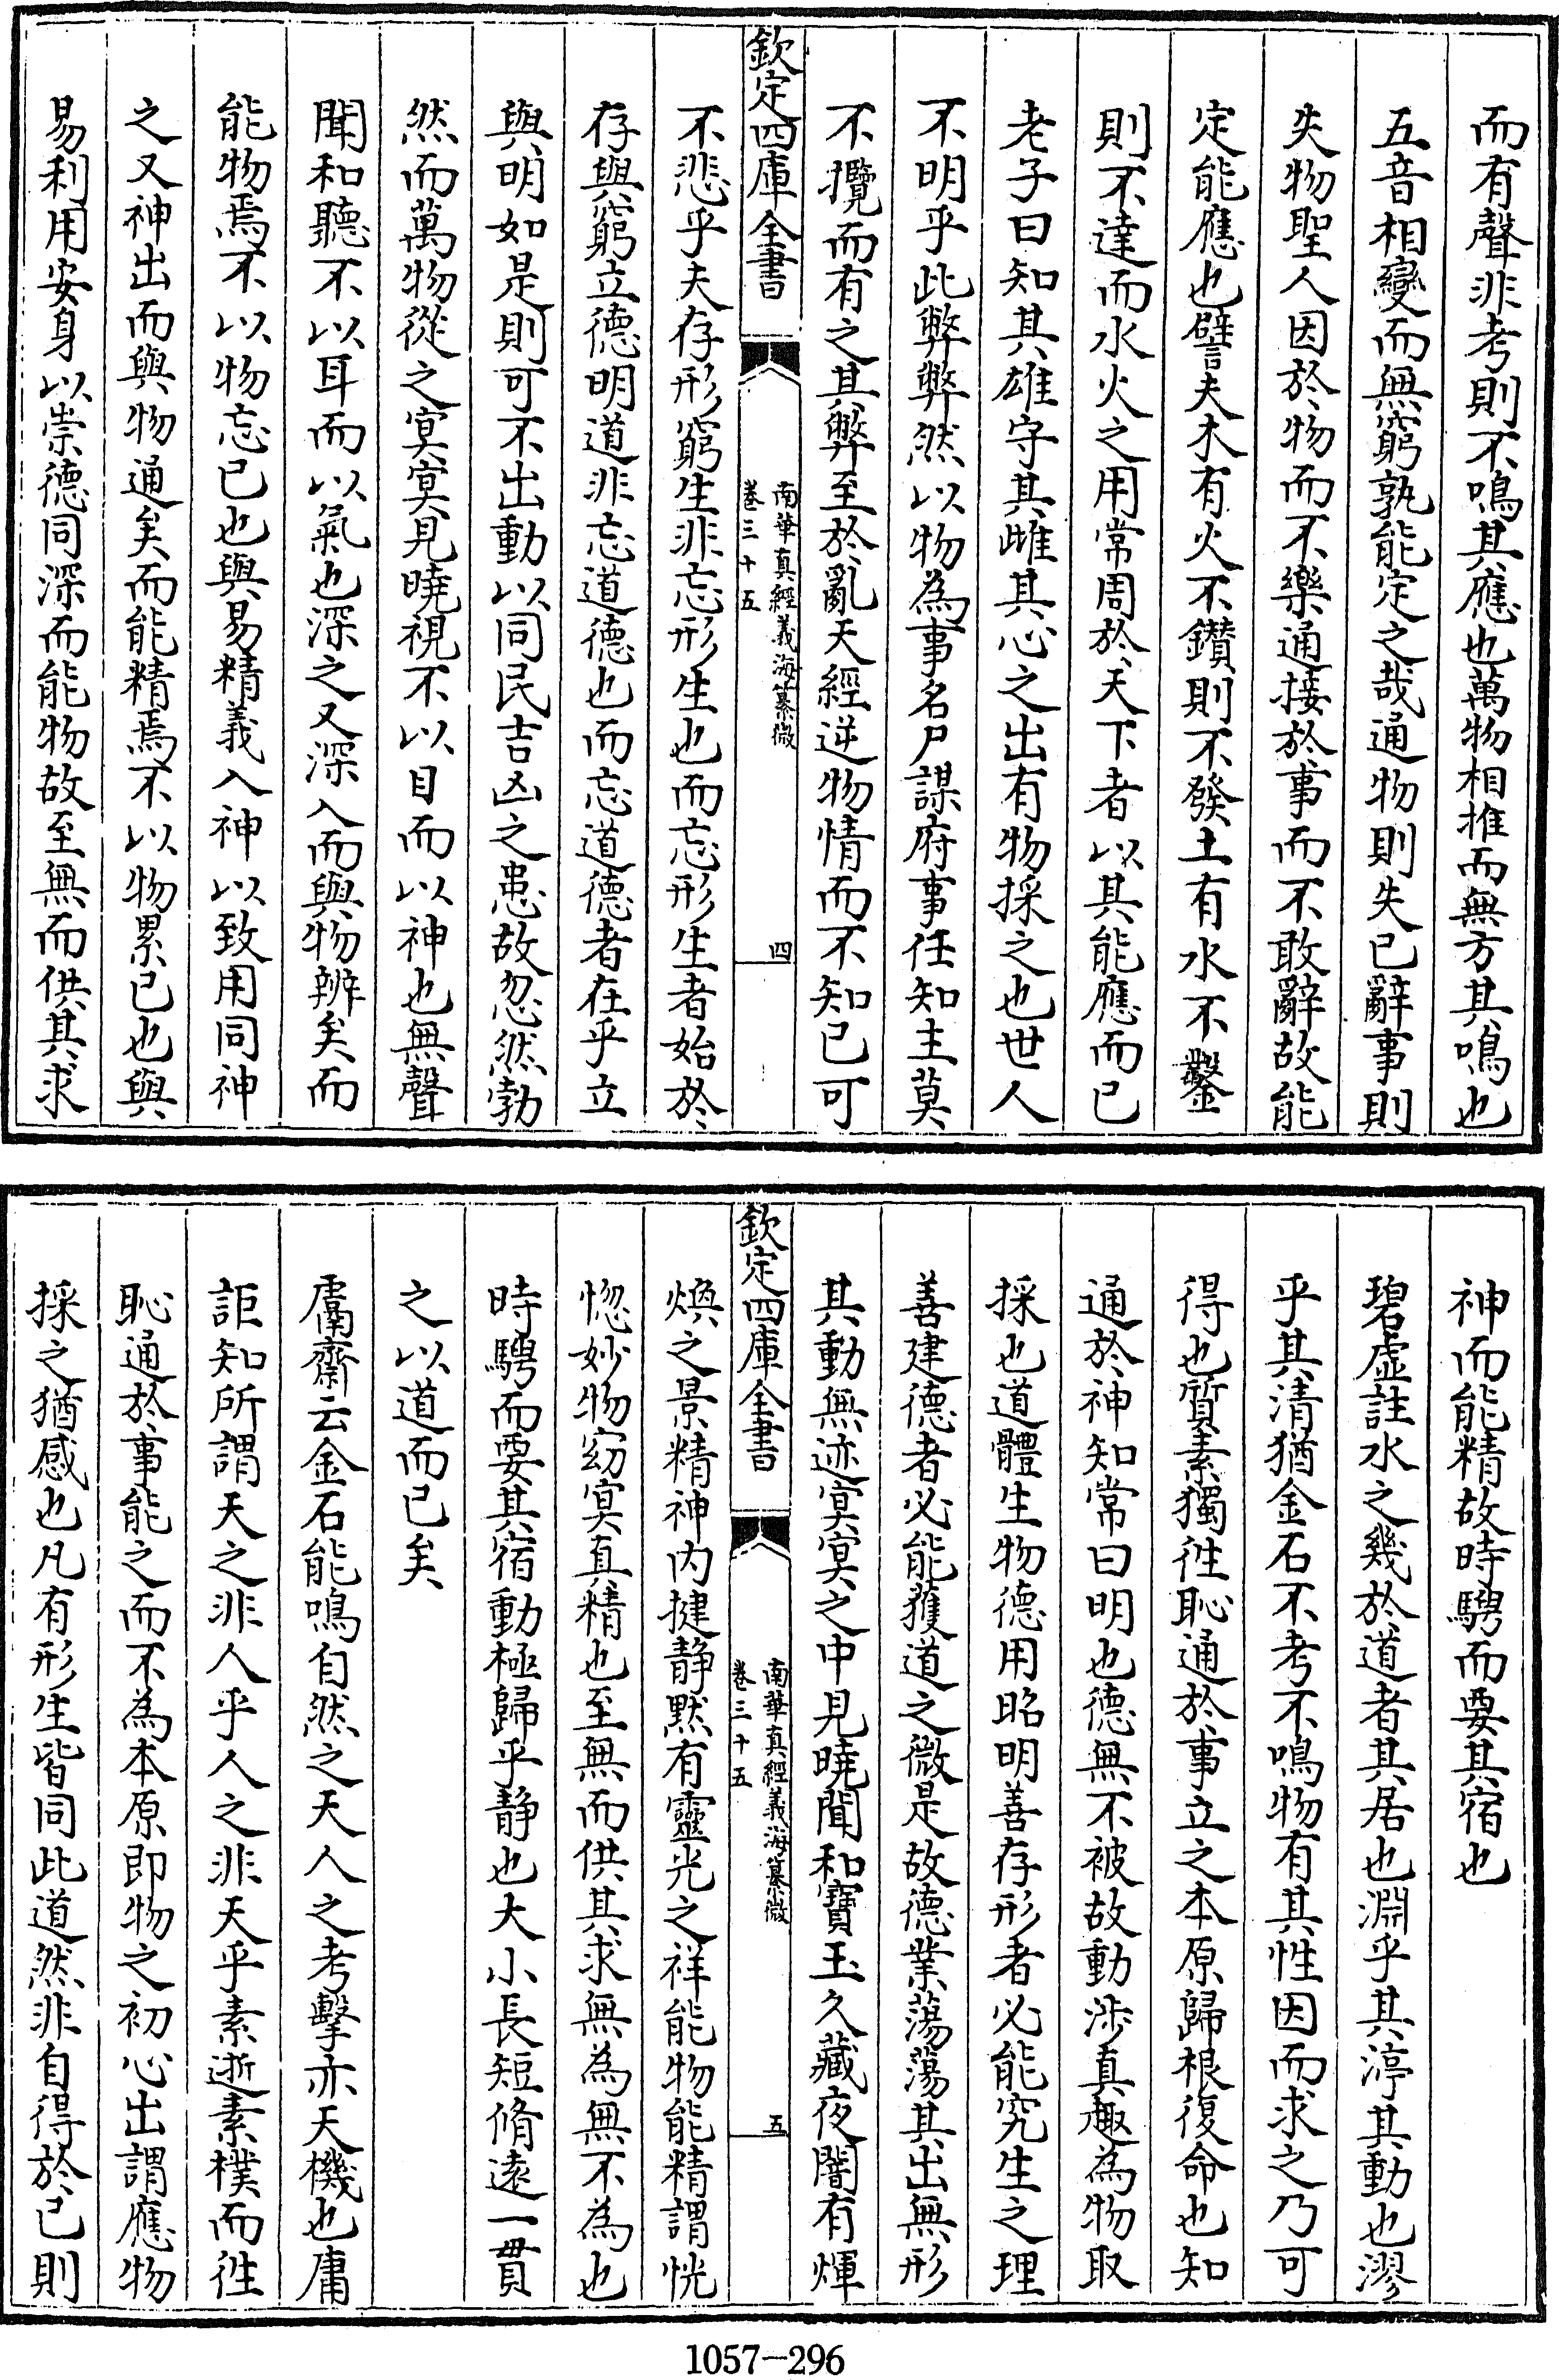 而有聲非考則不鳴其應也萬物相推而無方其鳴也
五音相變而無窮孰能定之哉通物則失已辭事則
失物聖人因於物而不樂通接於事而不敢辭故能
定能應也譬夫木有火不鑽則不發土有水不鑿
則不達而水火之用常周於天下者以其能應而已
老子曰知其雄守其雌其心之出有物採之也世人
不明乎此弊弊然以物為事名尸謀府事任知主莫
不攬而有之其弊至於亂天經逆物情而不知已可
欽定四庫全書
南華真經義海纂微
卷三十五
四
不悲乎夫存形窮生非忘形生也而忘形生者始於
存與窮立德明道非忘道德也而忘道德者在乎立
與明如是則可不出動以同民吉凶之患故忽然勃
然而萬物從之冥冥見曉視不以目而以神也無聲
聞和聽不以耳而以氣也深之又深入而與物辨矣而
能物焉不以物忘已也與易精義入神以致用同神
之又神出而與物通矣而能精焉不以物累已也與
易利用安身以崇德同深而能物故至無而供其求
神而能精故時騁而要其宿也
碧虛註水之幾於道者其居也淵乎其渟其動也漻
乎其清猶金石不考不鳴物有其性因而求之乃可
得也質素獨徃恥通於事立之本原歸根復命也知
通於神知常曰明也德無不被故動涉真趣為物取
採也道體生物德用昭明善存形者必能究生之理
善建德者必能獲道之微是故德業蕩蕩其出無形
其動無迹冥冥之中見曉聞和寶玉久藏夜闇有煇
欽定四庫全書
南華真經義海纂微
卷三十五
五
煥之景精神內揵静默有靈光之祥能物能精謂恍
惚妙物窈冥真精也至無而供其求無為無不為也
時騁而要其宿動極歸乎静也大小長短脩遠一貫
之以道而已矣
鬳齋云金石能鳴自然之天人之考擊亦天機也庸
詎知所謂天之非人乎人之非天乎素逝素樸而徃
恥通於事能之而不為本原即物之初心出謂應物
採之猶感也凡有形生皆同此道然非自得於已則
1057-296